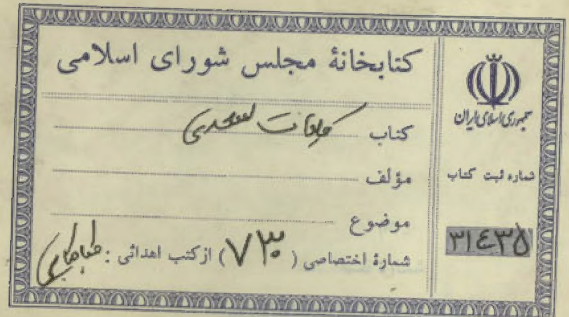 کتابخانهٔ مجلس شورای اسلامی
کتاب کلیات سعدی
مؤلف
موضوع
شمارهٔ اختصاصی ( ۷۳۰ ) از کتب اهدائی : طباطبائی
جمهوری اسلامی ایران
شماره ثبت کتاب
۳۱۴۳۵